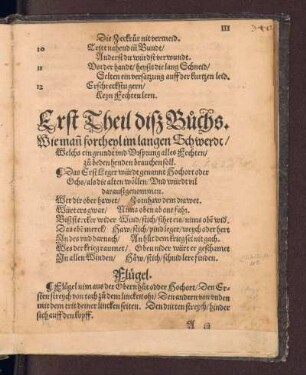 III
Die Zeckrür nit vermeid.
10 Tritt nahend in Bundt/
Anderst du würdst verwandt.
11 Vor der handt/heyßt die lang Schneid/
Selten ein versatzung auff der kurtzen leid.
12 Erschreckstu gern/
Keyn Fechten lern.
Erst Theil diß Buchs.
Wie mañ fortheyl im langen Schwerdt/
Welchs ein grundt vnd Vrsprung alles Fechten/
zu bedencken den brauchen soll.
Das Erst Leger würdt genannt Hochort oder
Oche/als die alten wöllen/Vnd würdt vil
darauß genommen.
Wer dir ober hawet/ Zornhaw dem drewet.
Würt er gwar/ Nims oben ab on fahr.
Biß stercker wider Wind/stich/sihet ers/nims obē wid.
Das ebē merck/ Häw/stich/ Leger/weych oder hert
In des vnd varnach/ An hür dem krieg sei nit gach.
Wes der krieg rammet/ Oben nider würt er geschämet
In allen Winden/ Häw/stich/schnid lern finden.
Flügel.
Flügel nim auß der Obern hüt oder Hochort/Den Er-
sten streych von tach zu dem lincken ohr/Den andern von vnden
mit dem tritt deiner lincken seiten. Den dritten streych/hinder
sich auff den kopff.
A